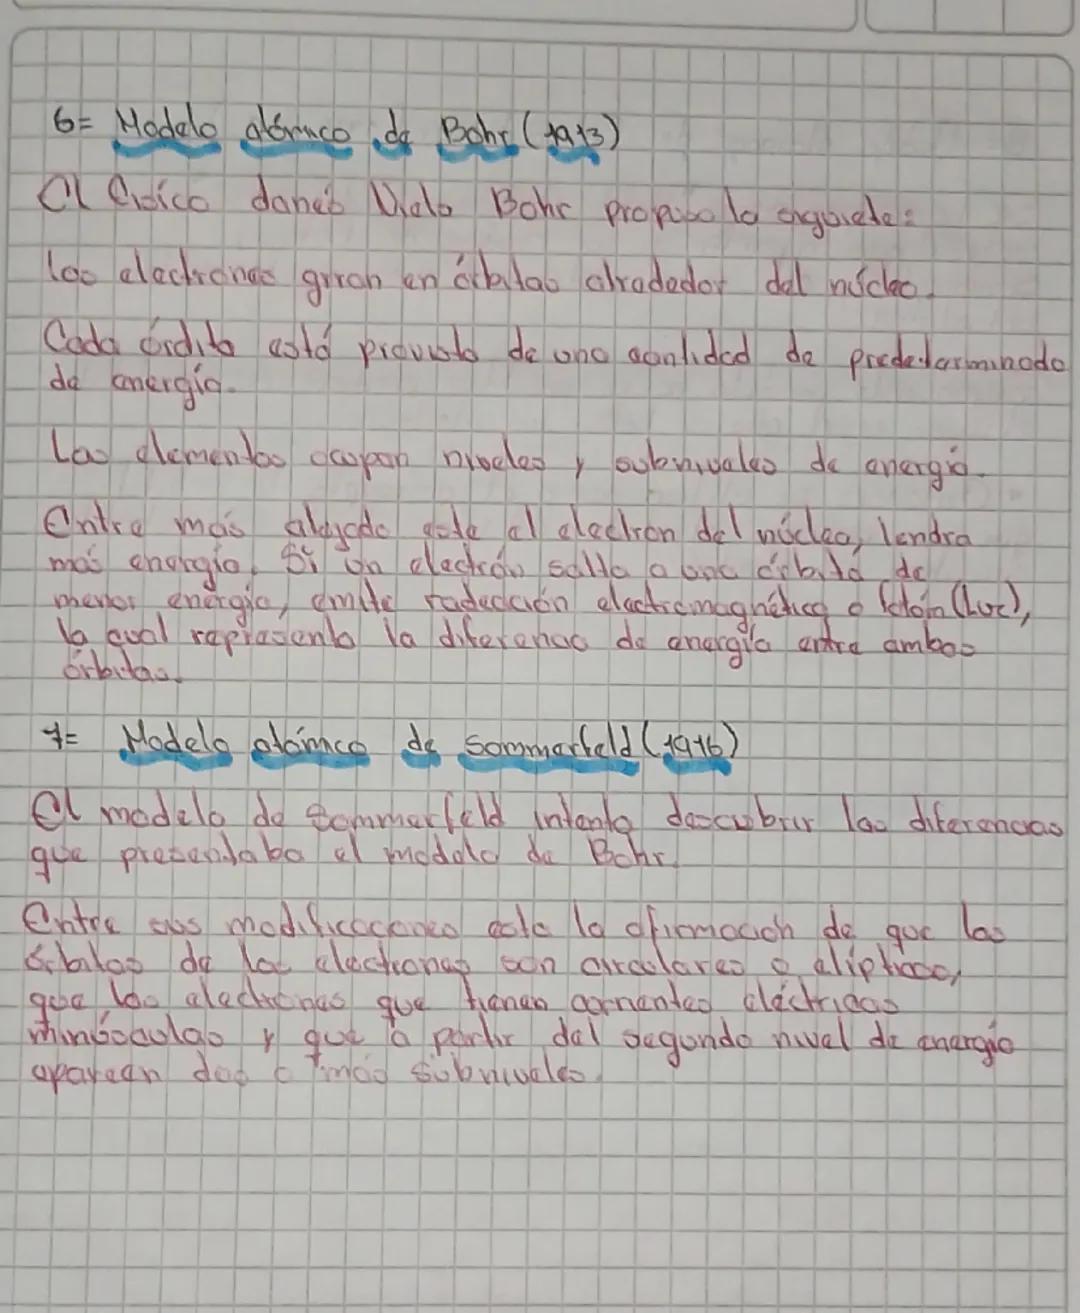 6= Modelo atómico de Bohr (1913)
El físico danés Niels Bohr propuso lo siguiente:
Los electrones giran en órbitas alrededor del núcleo.
Cada órdita está provista de una cantidad de predeterminada
de energía.
Los elementos ocupan niveles y subniveles de energía.
Entre más alejado este el electron del núcleo, tendra
más energía, Si un electrón salta a una órbita de
menor energía, emite radedación electromagnética o fotón (Luz),
la cual representa la diferencia de energía entre ambas
órbitas.
7= Modelo atómico de Sommerfeld (1916)
El modelo de Sommerfeld intenta descubrir las diferencias
que presentaba el modelo de Bohr.
Entre sus modificaciones esta la afirmación de que las
órbitas de los electrones son circulares o elipticas,
que los electrones que tienen corrientes eléctricas
minúsculas y que a partir del segundo nivel de energía
aparecen dos o más subniveles.